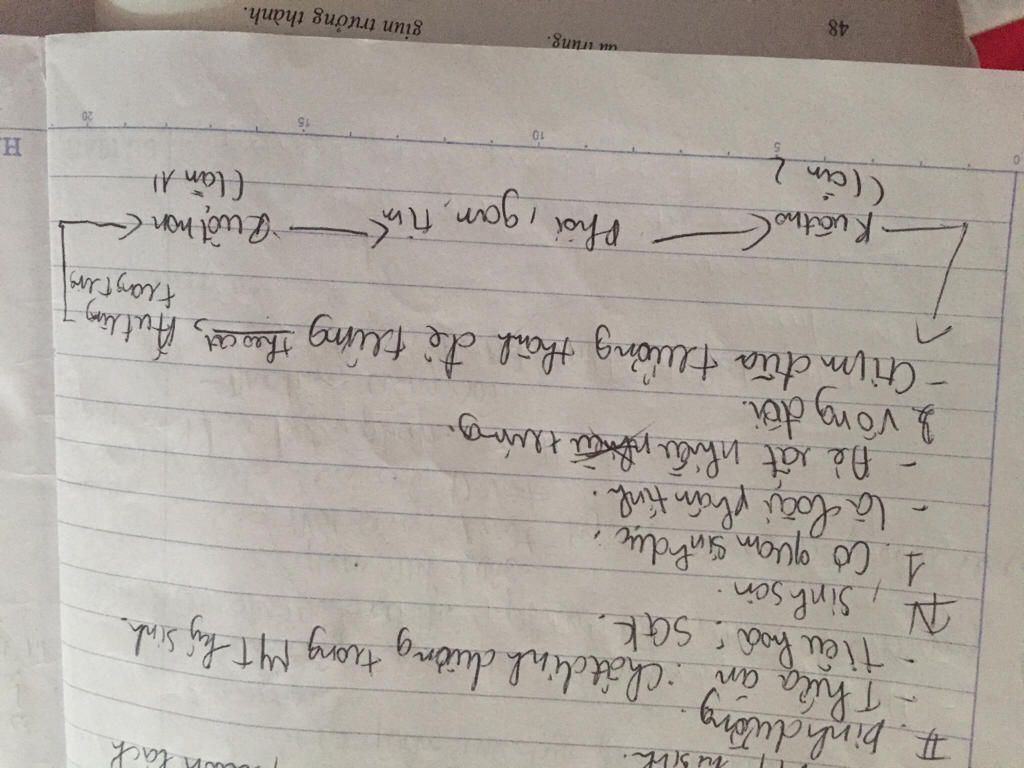 kí sinh.
II Dinh dưỡng.
- Thức ăn: Chất dinh dưỡng trong MT ký sinh.
- Tiêu hoá: SGK.
IV, Sinh sản.
1 Cơ quan sinh dục:
- Là loài phân tính.
- Đẻ rất nhiều trứng.
2 Vòng đời.
- Giun đũa trưởng thành đẻ trứng, Ấu trùng
trong trứng
Ruột no Phổi, gan, tim Ruột non
(lần 2 (lần 1)
0 5 10 15 20
H
ấu trùng.
48 giun trưởng thành.